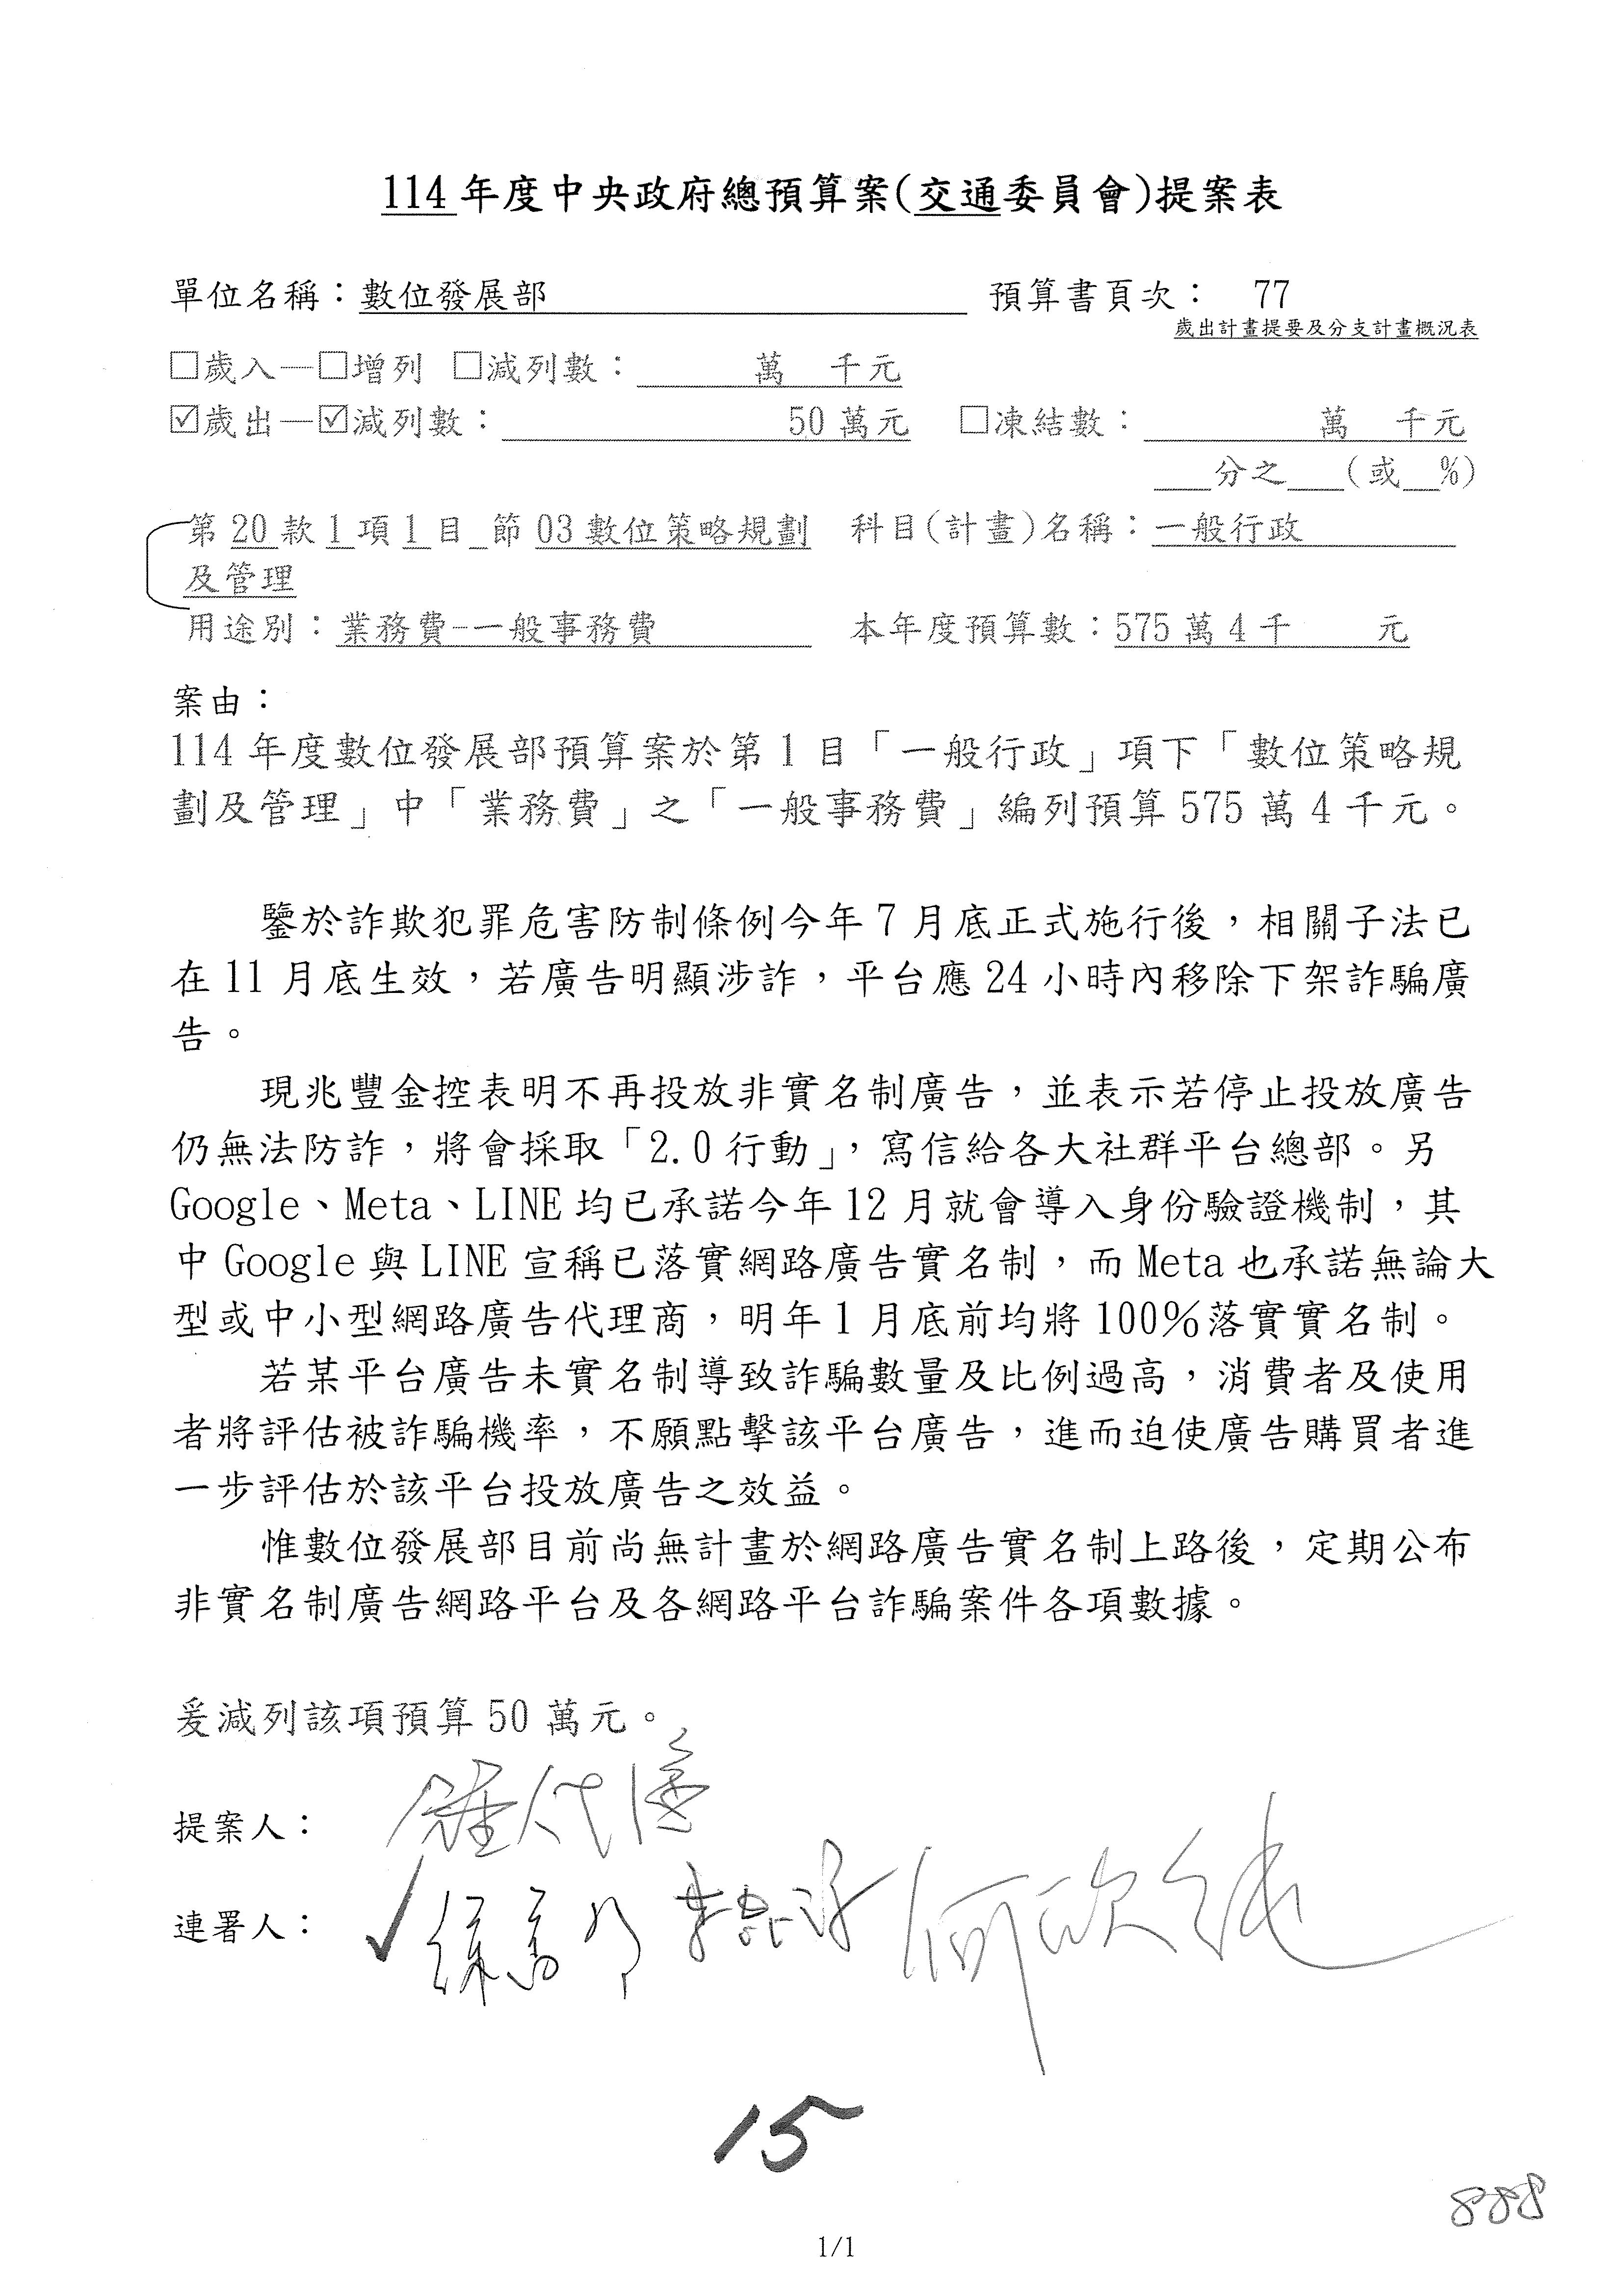 114年度中央政府總預算案(交通委員會)提案表
單位名稱：數位發展部 預算書頁次： 77
歲出計畫提要及分支計畫概況表
□歲入—□增列 □減列數： 萬 千元
☑歲出—☑減列數： 50萬元 □凍結數： 萬 千元
___分之___(或__%)
第20款1項1目_節03數位策略規劃 科目(計畫)名稱：一般行政
及管理
用途別：業務費-一般事務費 本年度預算數：575萬4千 元
案由：
114年度數位發展部預算案於第1目「一般行政」項下「數位策略規
劃及管理」中「業務費」之「一般事務費」編列預算575萬4千元。
鑒於詐欺犯罪危害防制條例今年7月底正式施行後，相關子法已
在11月底生效，若廣告明顯涉詐，平台應24小時內移除下架詐騙廣
告。
現兆豐金控表明不再投放非實名制廣告，並表示若停止投放廣告
仍無法防詐，將會採取「2.0行動」，寫信給各大社群平台總部。另
Google、Meta、LINE均已承諾今年12月就會導入身份驗證機制，其
中Google與LINE宣稱已落實網路廣告實名制，而Meta也承諾無論大
型或中小型網路廣告代理商，明年1月底前均將100%落實實名制。
若某平台廣告未實名制導致詐騙數量及比例過高，消費者及使用
者將評估被詐騙機率，不願點擊該平台廣告，進而迫使廣告購買者進
一步評估於該平台投放廣告之效益。
惟數位發展部目前尚無計畫於網路廣告實名制上路後，定期公布
非實名制廣告網路平台及各網路平台詐騙案件各項數據。
爰減列該項預算50萬元。
提案人：
連署人： ✓ 何欣純
15
888
1/1